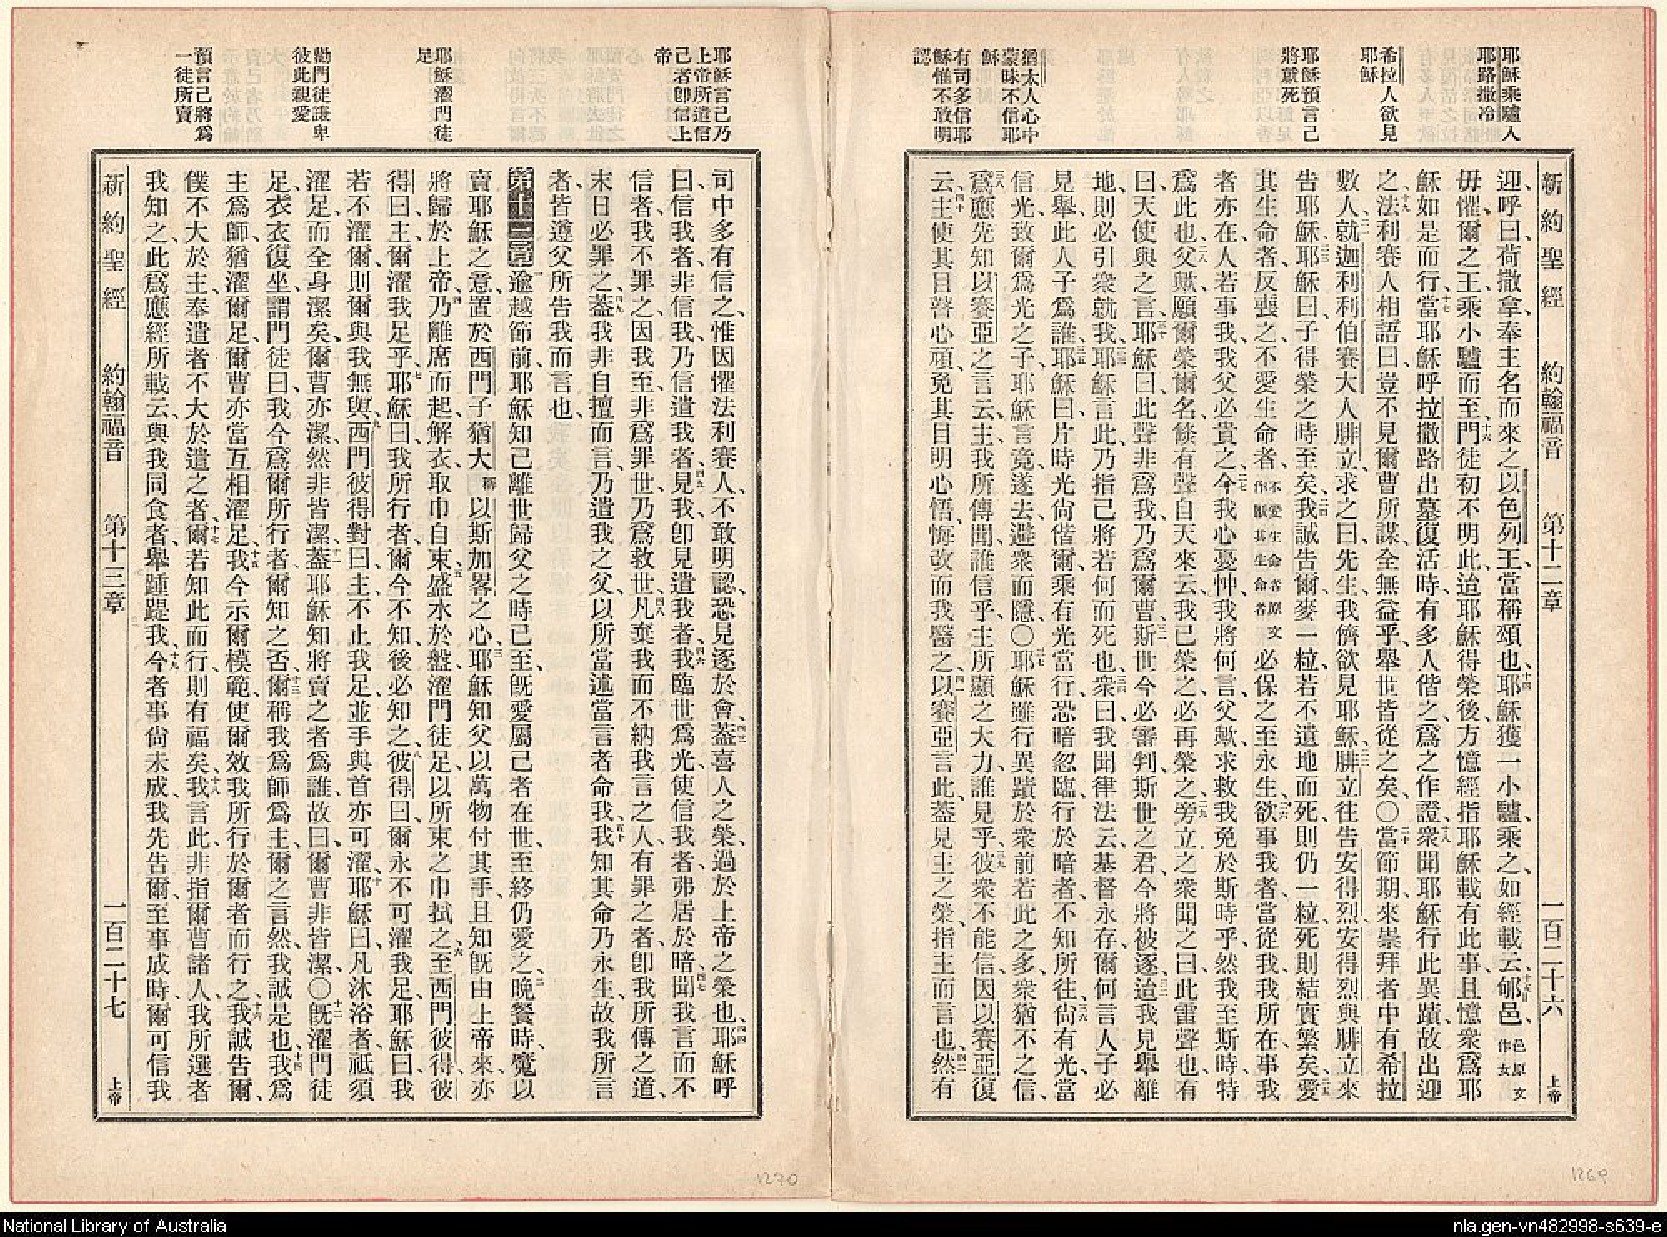 耶穌乘驢入
耶路撒冷
希拉人欲見
耶穌
耶穌預言己
將薨死
猶太人心中
蒙昧不信耶
穌
有司多信耶
穌惟不敢明
認
新約聖經 約翰福音 第十二章 一百二十六 上帝
迎呼曰荷撒拿奉主名而來之以色列王當稱頌也十四耶穌獲一小驢乘之如經載云十五郇邑邑原文作女
毋懼爾之王乘小驢而至十六門徒初不明此迨耶穌得榮後方憶經指耶穌載有此事且憶衆爲耶
穌如是而行十七當耶穌呼拉撒路出墓復活時有多人偕之爲之作證十八衆聞耶穌行此異蹟故出迎
之十九法利賽人相語曰豈不見爾曹所謀全無益乎舉世皆從之矣〇二十當節期來崇拜者中有希拉
數人二一就迦利利伯賽大人腓立求之曰先生我儕欲見耶穌二二腓立往告安得烈安得烈與腓立來
告耶穌二三耶穌曰人子得榮之時至矣二四我誠告爾麥一粒若不遺地而死則仍一粒死則結實繁矣二五愛
其生命者反喪之不愛生命者不愛生命者原文作厭其生命者必保之至永生二六欲事我者當從我我所在事我
者亦在人若事我我父必貴之二七今我心憂忡我將何言父歟求救我免於斯時乎然我至斯時特
爲此也二八父歟願爾榮爾名倐有聲自天來云我已榮之必再榮之二九旁立之衆聞之曰此雷聲也有
曰天使與之言三十耶穌曰此聲非爲我乃爲爾曹三一斯世今必審判斯世之君今將被逐三二迨我見舉離
地則必引衆就我三三耶穌言此乃指己將若何而死也三四衆曰我聞律法云基督永存爾何言人子必
見舉此人子爲誰三五耶穌曰片時光尚偕爾乘有光當行恐暗忽臨行於暗者不知所往三六尚有光當
信光致爾爲光之子耶穌言竟遂去避衆而隱〇三七耶穌雖行異蹟於衆前若此之多衆猶不之信
三八爲應先知以賽亞之言云主我所傳聞誰信乎主所顯之大力誰見乎三九彼衆不能信因以賽亞復
云四十主使其目瞽心頑免其目明心悟悔改而我醫之四一以賽亞言此蓋見主之榮指主而言也四二然有
耶穌言己乃
上帝所遣信
己者卽信上
帝
耶穌濯門徒
足
勸門徒謙卑
彼此親愛
預言己將爲
一徒所賣
司中多有信之惟因懼法利賽人不敢明認恐見逐於會四三蓋喜人之榮過於上帝之榮也四四耶穌呼
曰信我者非信我乃信遣我者四五見我卽見遣我者四六我臨世爲光使信我者弗居於暗四七聞我言而不
信者我不罪之因我至非爲罪世乃爲救世四八凡棄我而不納我言之人有罪之者卽我所傳之道
末日必罪之四九蓋我非自擅而言乃遣我之父以所當述當言者命我五十我知其命乃永生故我所言
者皆遵父所告我而言也
第十三章一逾越節前耶穌知己離世歸父之時已至旣愛屬己者在世至終仍愛之二晚餐時魔以
賣耶穌之意置於西門子猶大以斯加畧之心三耶穌知父以萬物付其手且知旣由上帝來亦
將歸於上帝四乃離席而起解衣取巾自束五盛水於盤濯門徒足以所束之巾拭之六至西門彼得彼
得曰主爾濯我足乎七耶穌曰我所行者爾今不知後必知之八彼得曰爾永不可濯我足耶穌曰我
若不濯爾則爾與我無與九西門彼得對曰主不止我足並手與首亦可濯十耶穌曰凡沐浴者祗須
濯足而全身潔矣爾曹亦潔然非皆潔十一蓋耶穌知將賣之者爲誰故曰爾曹非皆潔〇十二旣濯門徒
足衣衣復坐謂門徒曰我今爲爾所行者爾知之否十三爾稱我爲師爲主爾之言然我誠是也十四我爲
主爲師猶濯爾足爾曹亦當互相濯足十五我今示爾模範使爾效我所行於爾者而行之十六我誠告爾
僕不大於主奉遣者不大於遣之者十七爾若知此而行則有福矣十八我言此非指爾曹諸人我所選者
我知之此爲應經所載云與我同食者舉踵踶我十九今者事尚未成我先告爾至事成時爾可信我
新約聖經 約翰福音 第十三章 一百二十七 上帝
1270
1269
National Library of Australia
nla.gen-vn482998-s639-e